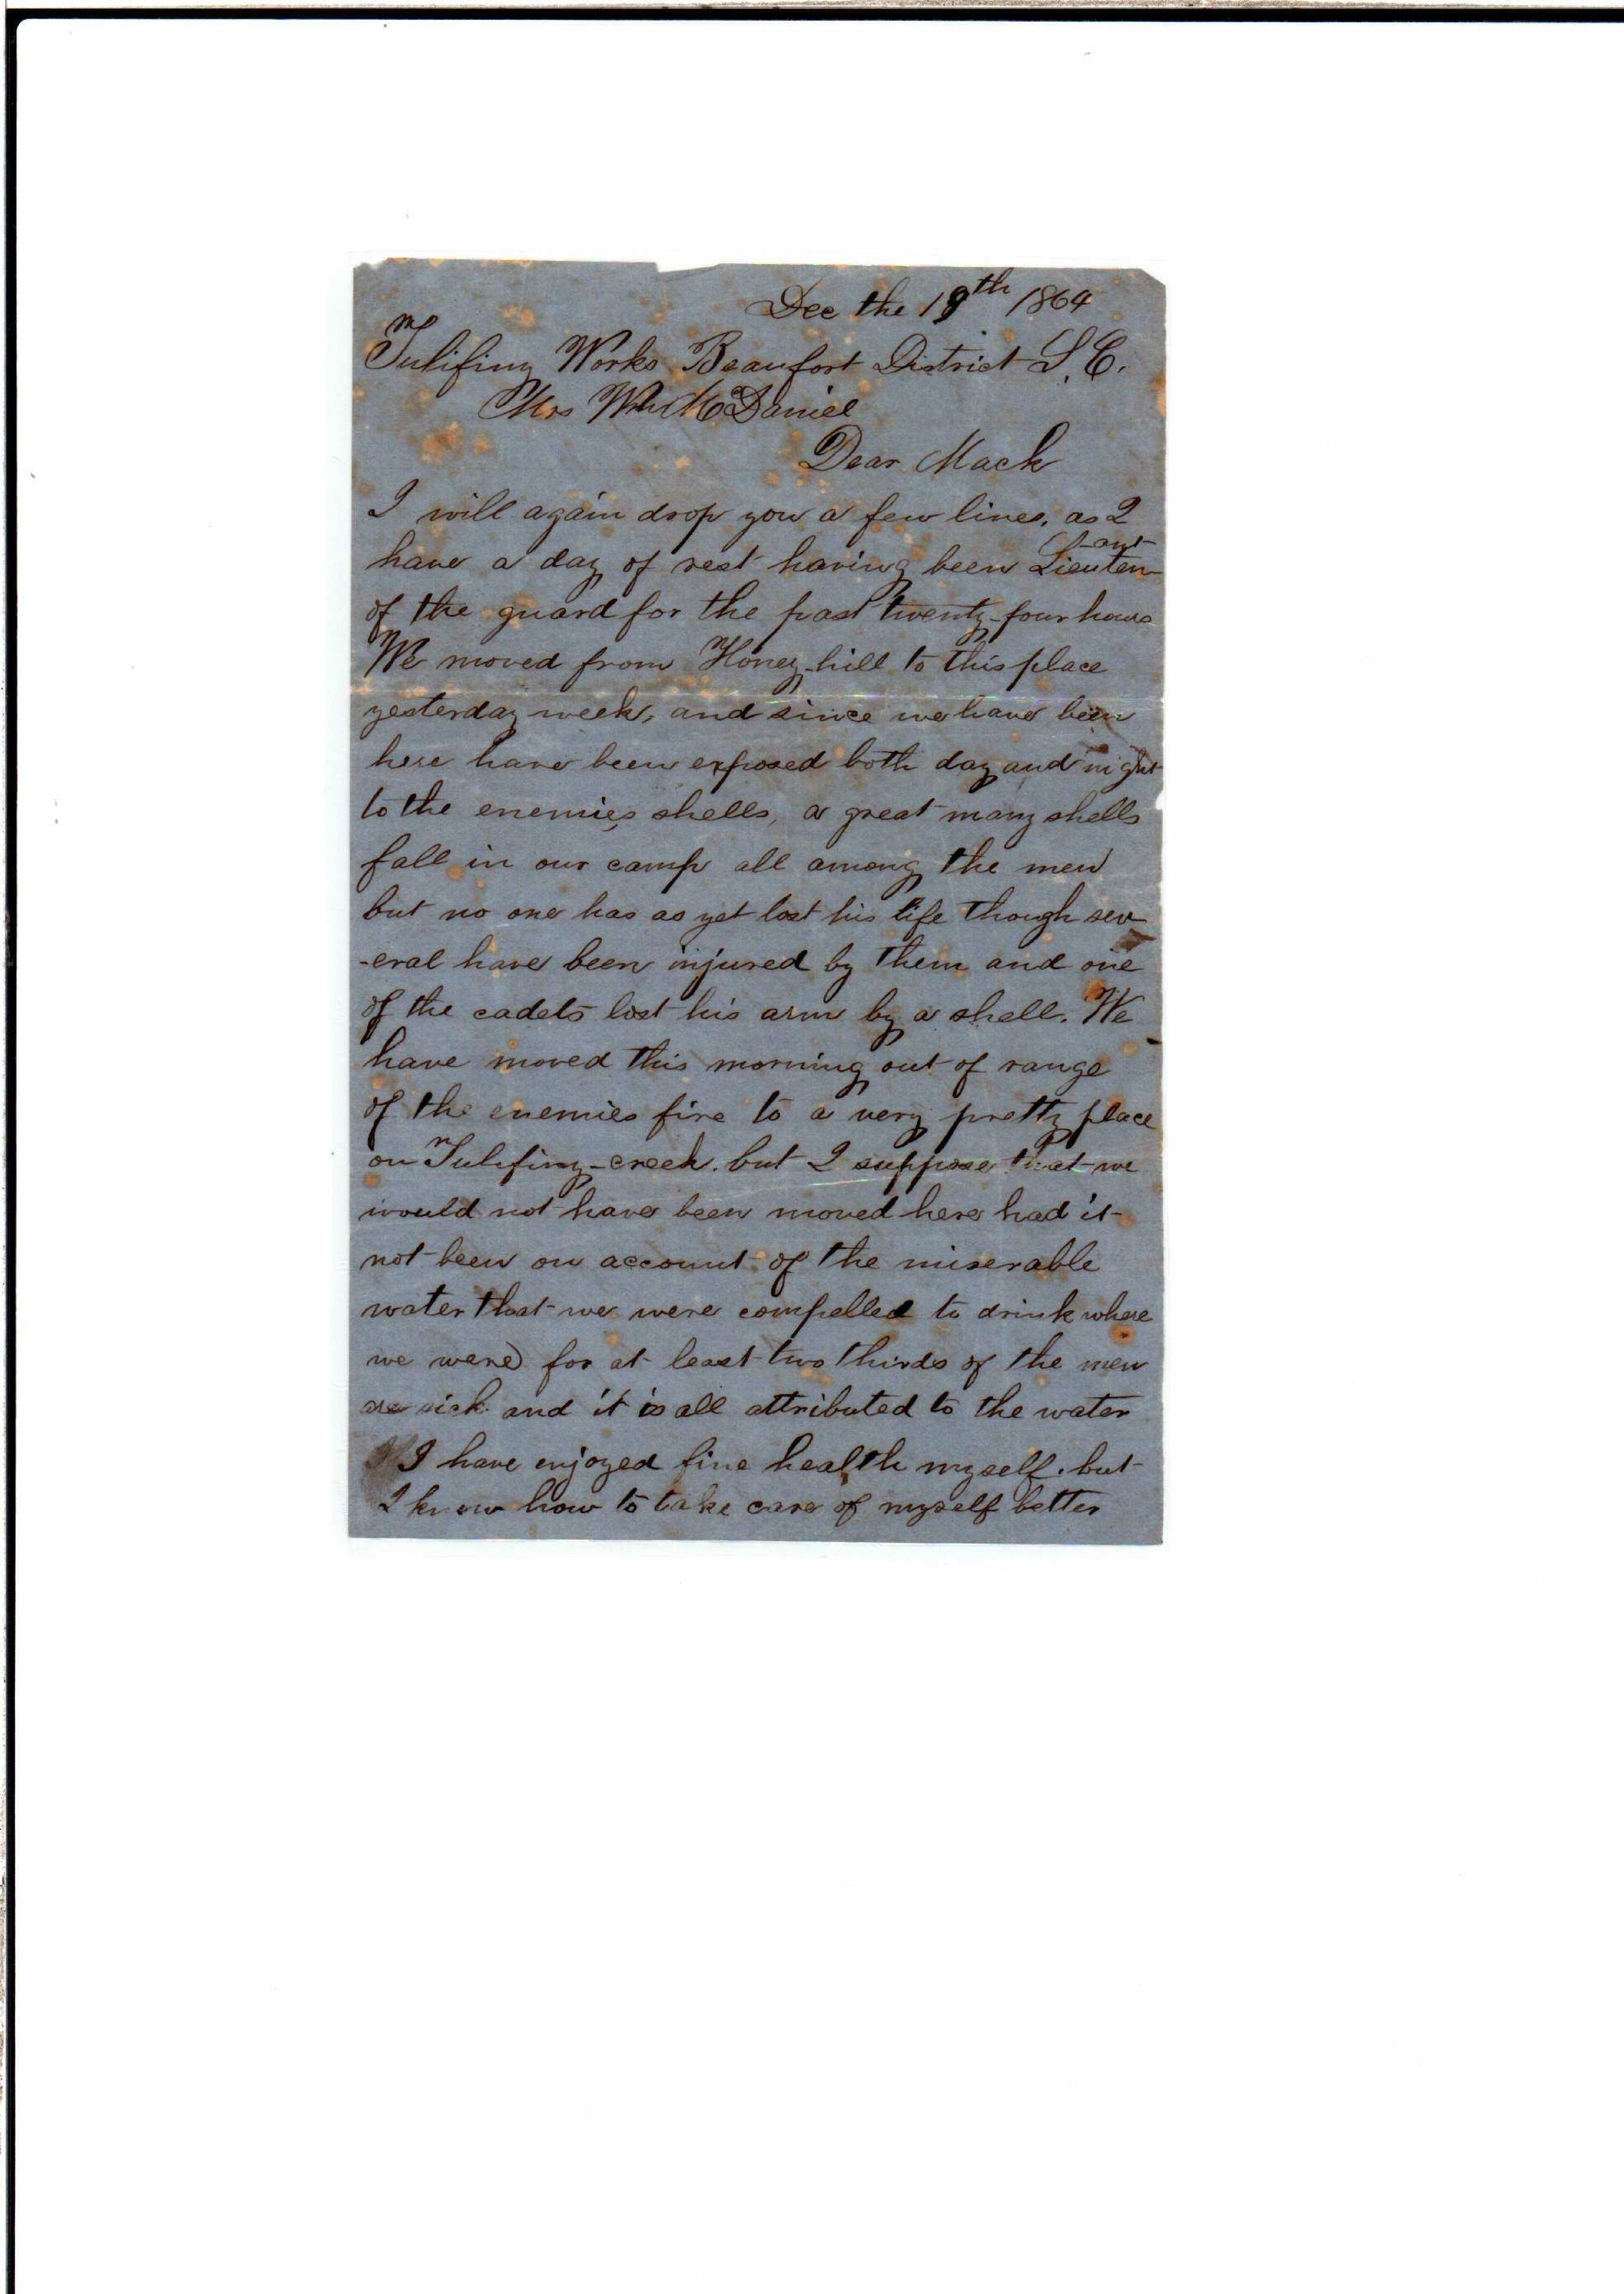 Dec the 19th 1864
Tulifiny Works Beaufort District S.C.
Mrs Wm McDaniel
Dear Mack
I will again drop you a few lines, as I
have a day of rest having been Lieuten-ant
of the guard for the past twenty-four hours
We moved from Honey-hill to this place
yesterday week, and since we have been
here have been exposed both day and night
to the enemies shells, a great many shells
fall in our camp all among the men
but no one has as yet lost his life though sev
-eral have been injured by them and one
of the cadets lost his arm by a shell. We
have moved this morning out of range
of the enemies fire to a very pretty place
on Tulifiny-creek. but I suppose that we
would not have been moved here had it
not been on account of the miserable
water that we were compelled to drink where
we were for at least two thirds of the men
are sick and it is all attributed to the water
I have enjoyed fine health myself. but
I know how to take care of myself better